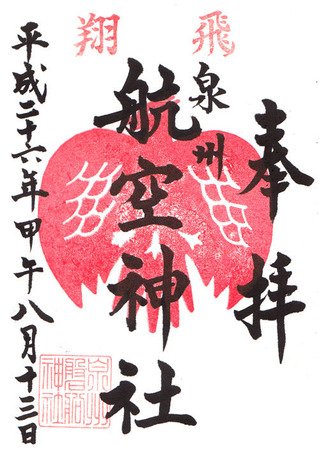 飛翔
奉拝
泉州
航空神社
平成二十六年甲午八月十三日
泉州
磐船
神社